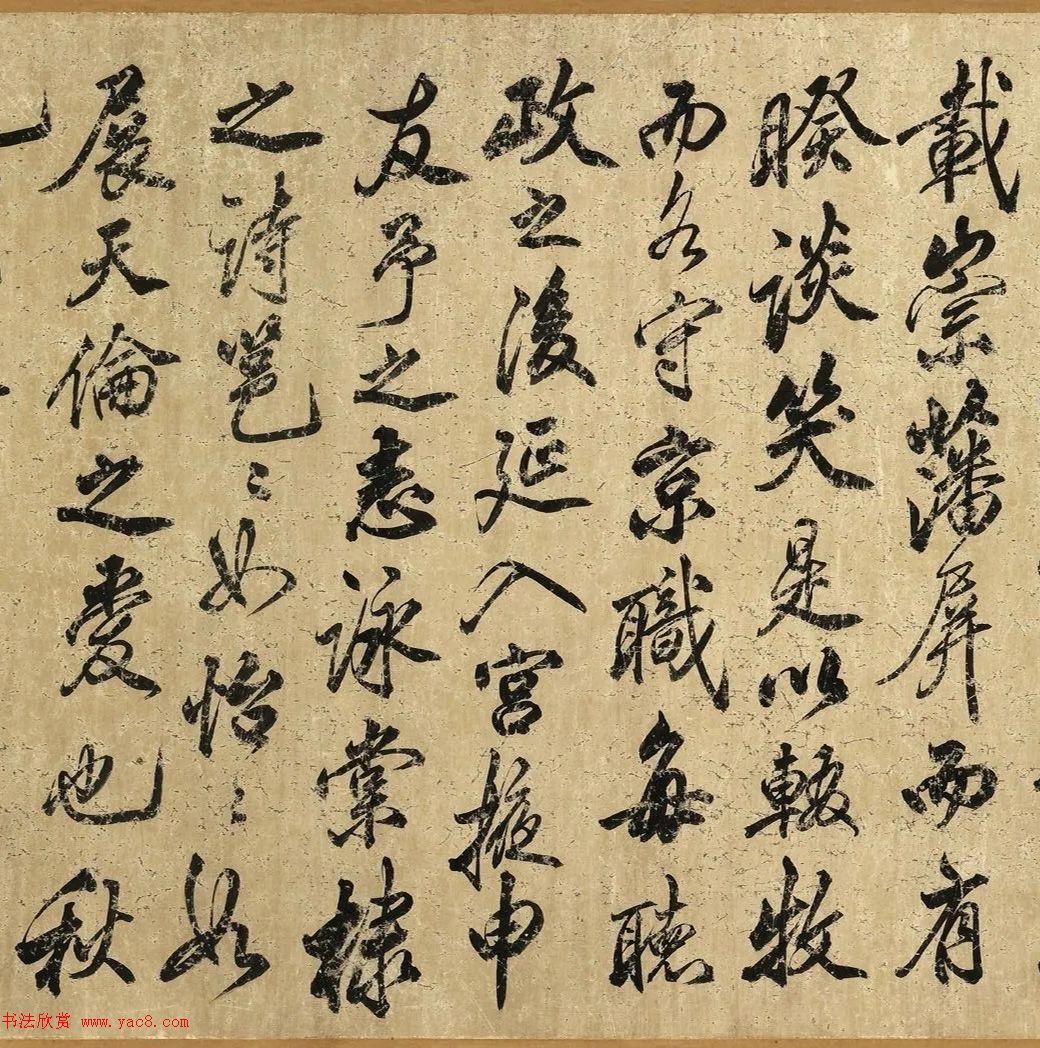 載崇藩屏而有
暌談笑是以輟牧
而各守京職每聽
政之後延入宮掖申
友于之志詠棠棣
之詩邕〻如怡〻如
展天倫之愛也秋
书法欣赏 www.yac8.com